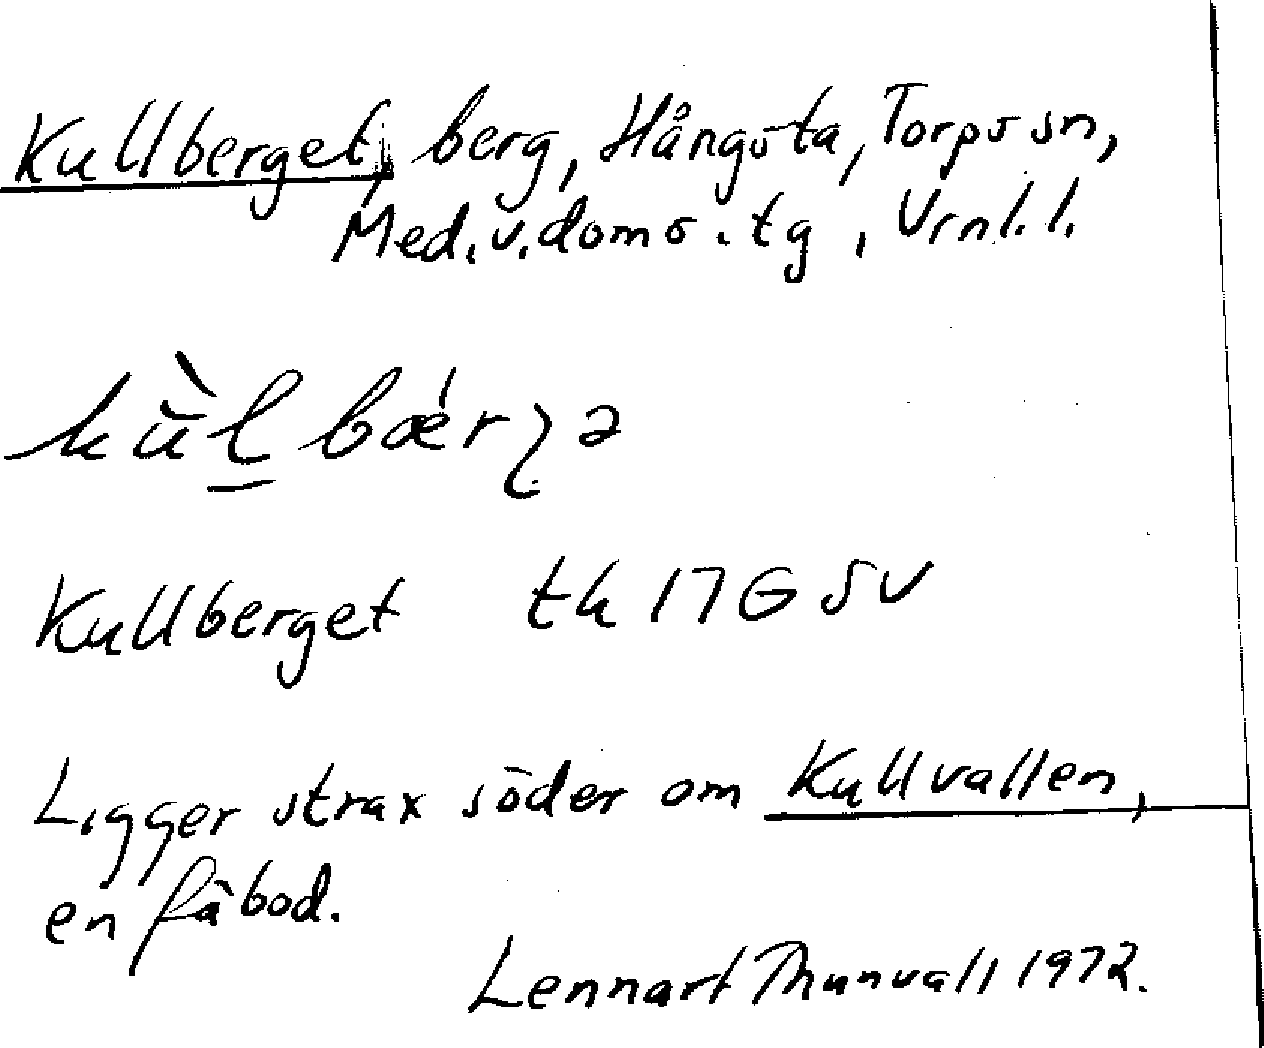 Kullberget, berg, Hångsta, Torps sn,
Med.v.doms.tg, Vrnl.l.
kùl bǽrʒə
Kullberget tk 17G SV
Ligger strax söder om Kullvallen,
en fäbod.
Lennart Thunvall 1972.